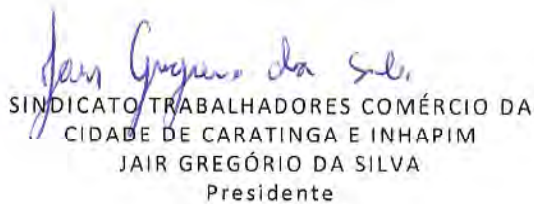 Jair Gregório da Silva
SINDICATO TRABALHADORES COMÉRCIO DA
CIDADE DE CARATINGA E INHAPIM
JAIR GREGÓRIO DA SILVA
Presidente